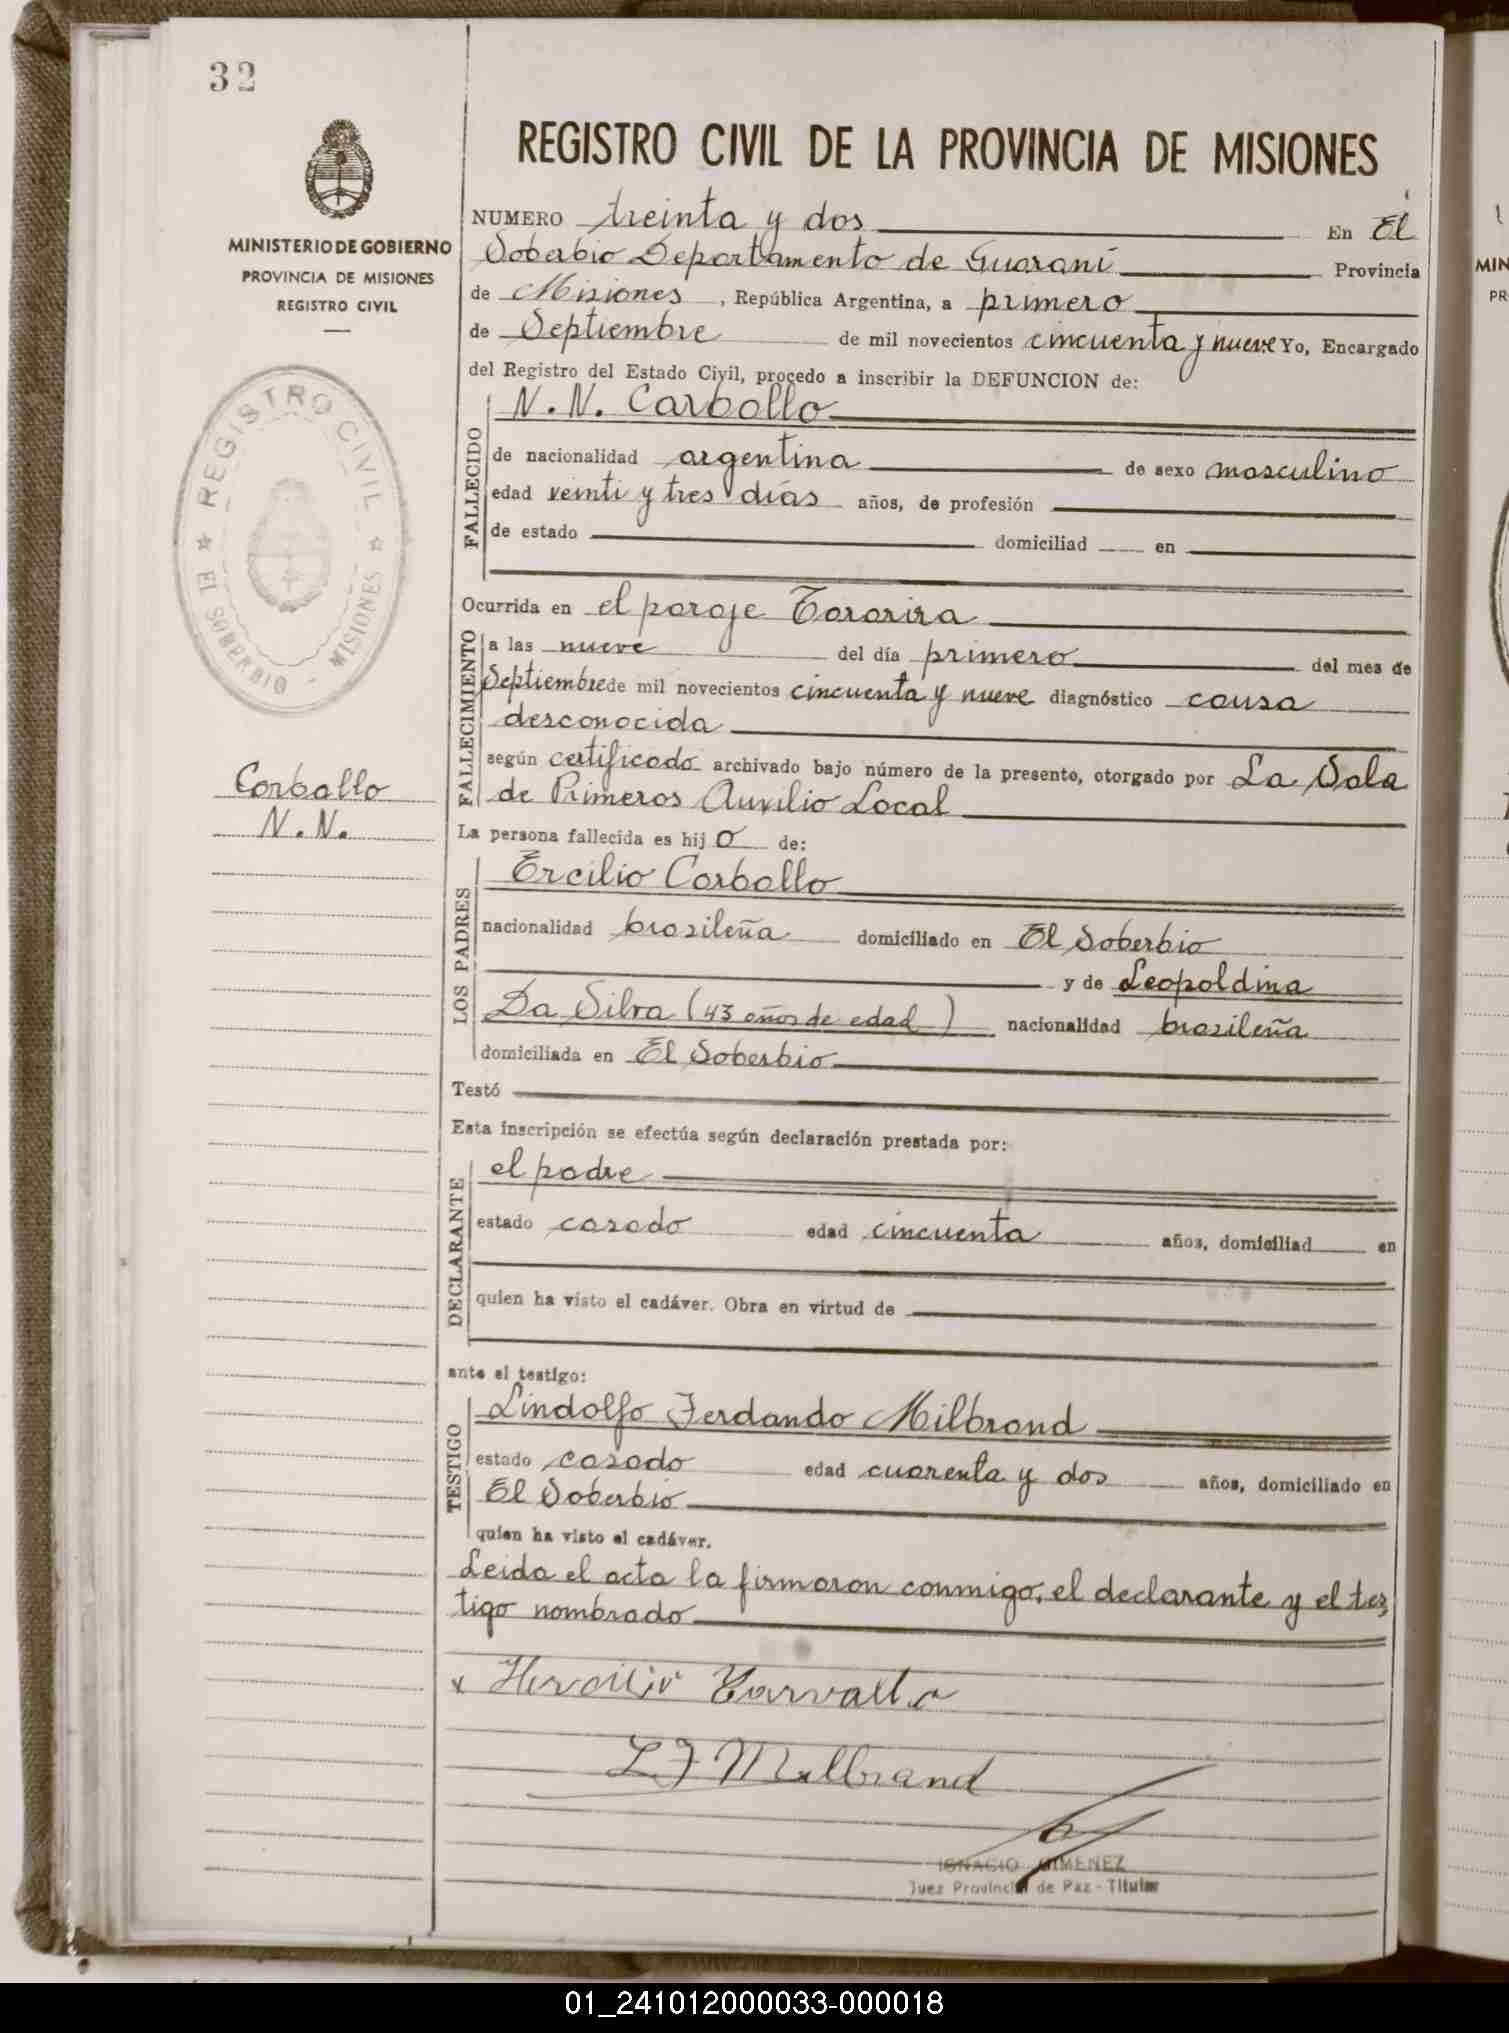 32
REGISTRO CIVIL DE LA PROVINCIA DE MISIONES
MINISTERIO DE GOBIERNO
PROVINCIA DE MISIONES
REGISTRO CIVIL
NUMERO treinta y dos En El
Soberbio Departamento de Guaraní Provincia
de Misiones, República Argentina, a primero
de Septiembre de mil novecientos cincuenta y nueve Yo, Encargado
del Registro del Estado Civil, procedo a inscribir la DEFUNCION de:
REGISTRO CIVIL
El SOBERBIO - MISIONES
FALLECIDO
N. N. Carballo
de nacionalidad argentina de sexo masculino
edad veinti y tres días años, de profesión
de estado domiciliad en
Ocurrida en el paraje Tararira
FALLECIMIENTO
a las nueve del día primero del mes de
Septiembre de mil novecientos cincuenta y nueve diagnóstico causa
desconocida
según certificado archivado bajo número de la presente, otorgado por La Sala
de Primeros Auxilio Local
Carballo
N. N.
La persona fallecida es hijo de:
LOS PADRES
Ercilio Carballo
nacionalidad brasileña domiciliado en El Soberbio
y de Leopoldina
Da Silva (43 años de edad) nacionalidad brasileña
domiciliada en El Soberbio
Testó
Esta inscripción se efectúa según declaración prestada por:
DECLARANTE
el padre
estado casado edad cincuenta años, domiciliad en
quien ha visto el cadáver. Obra en virtud de
ante el testigo:
TESTIGO
Lindolfo Ferdando Milbrand
estado casado edad cuarenta y dos años, domiciliado en
El Soberbio
quien ha visto el cadáver.
Leida el acta la firmaron conmigo, el declarante y el tes
tigo nombrado
x Hercilio Carvalho
L F Milbrand
IGNACIO GIMENEZ
Juez Provincial de Paz - Titular
01_241012000033-000018
MIN
PR